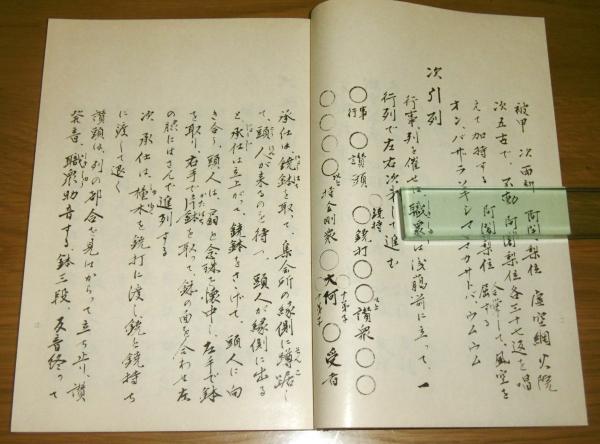 被甲 次面
阿闍梨位 虚空網 火院
次五古で、不動 阿闍梨位各三十七返を唱
えて加持する 阿闍梨位 屈する
合掌して、風空を
オン、バサラ ソキシマ マカサトバ ウム ウム
次引列
行事列を催せば、職衆は浅﨟前に立って、一
行列で左右次第して進む
行事 ○ 讃頭 ○ 鐃打 ○ ○ 讃衆 ○ ○
鐃持
○ ○ ○ 持金剛衆 ○ 大阿 ○ 受者
十弟子 十弟子
承仕は、鐃鉢を取って、集会所の縁側に蹲踞し
て、頭人が来るのを待つ、頭人が縁側に出る
と承仕は立上がって、鐃鉢をささげて、頭人に向
き合う、頭人は、扇と念珠を懐中し、左手で鉢
を取り、右手で片鉢を取って、鉢の面を合わせ左
の脇にはさんで進列する
次 承仕は、橦木を鐃打に渡し、鐃を鐃持ち
に渡して退く
讃頭は、列の都合を見はからって立ち止り、讃
発音、職衆助音する、鉢三段 反音終って